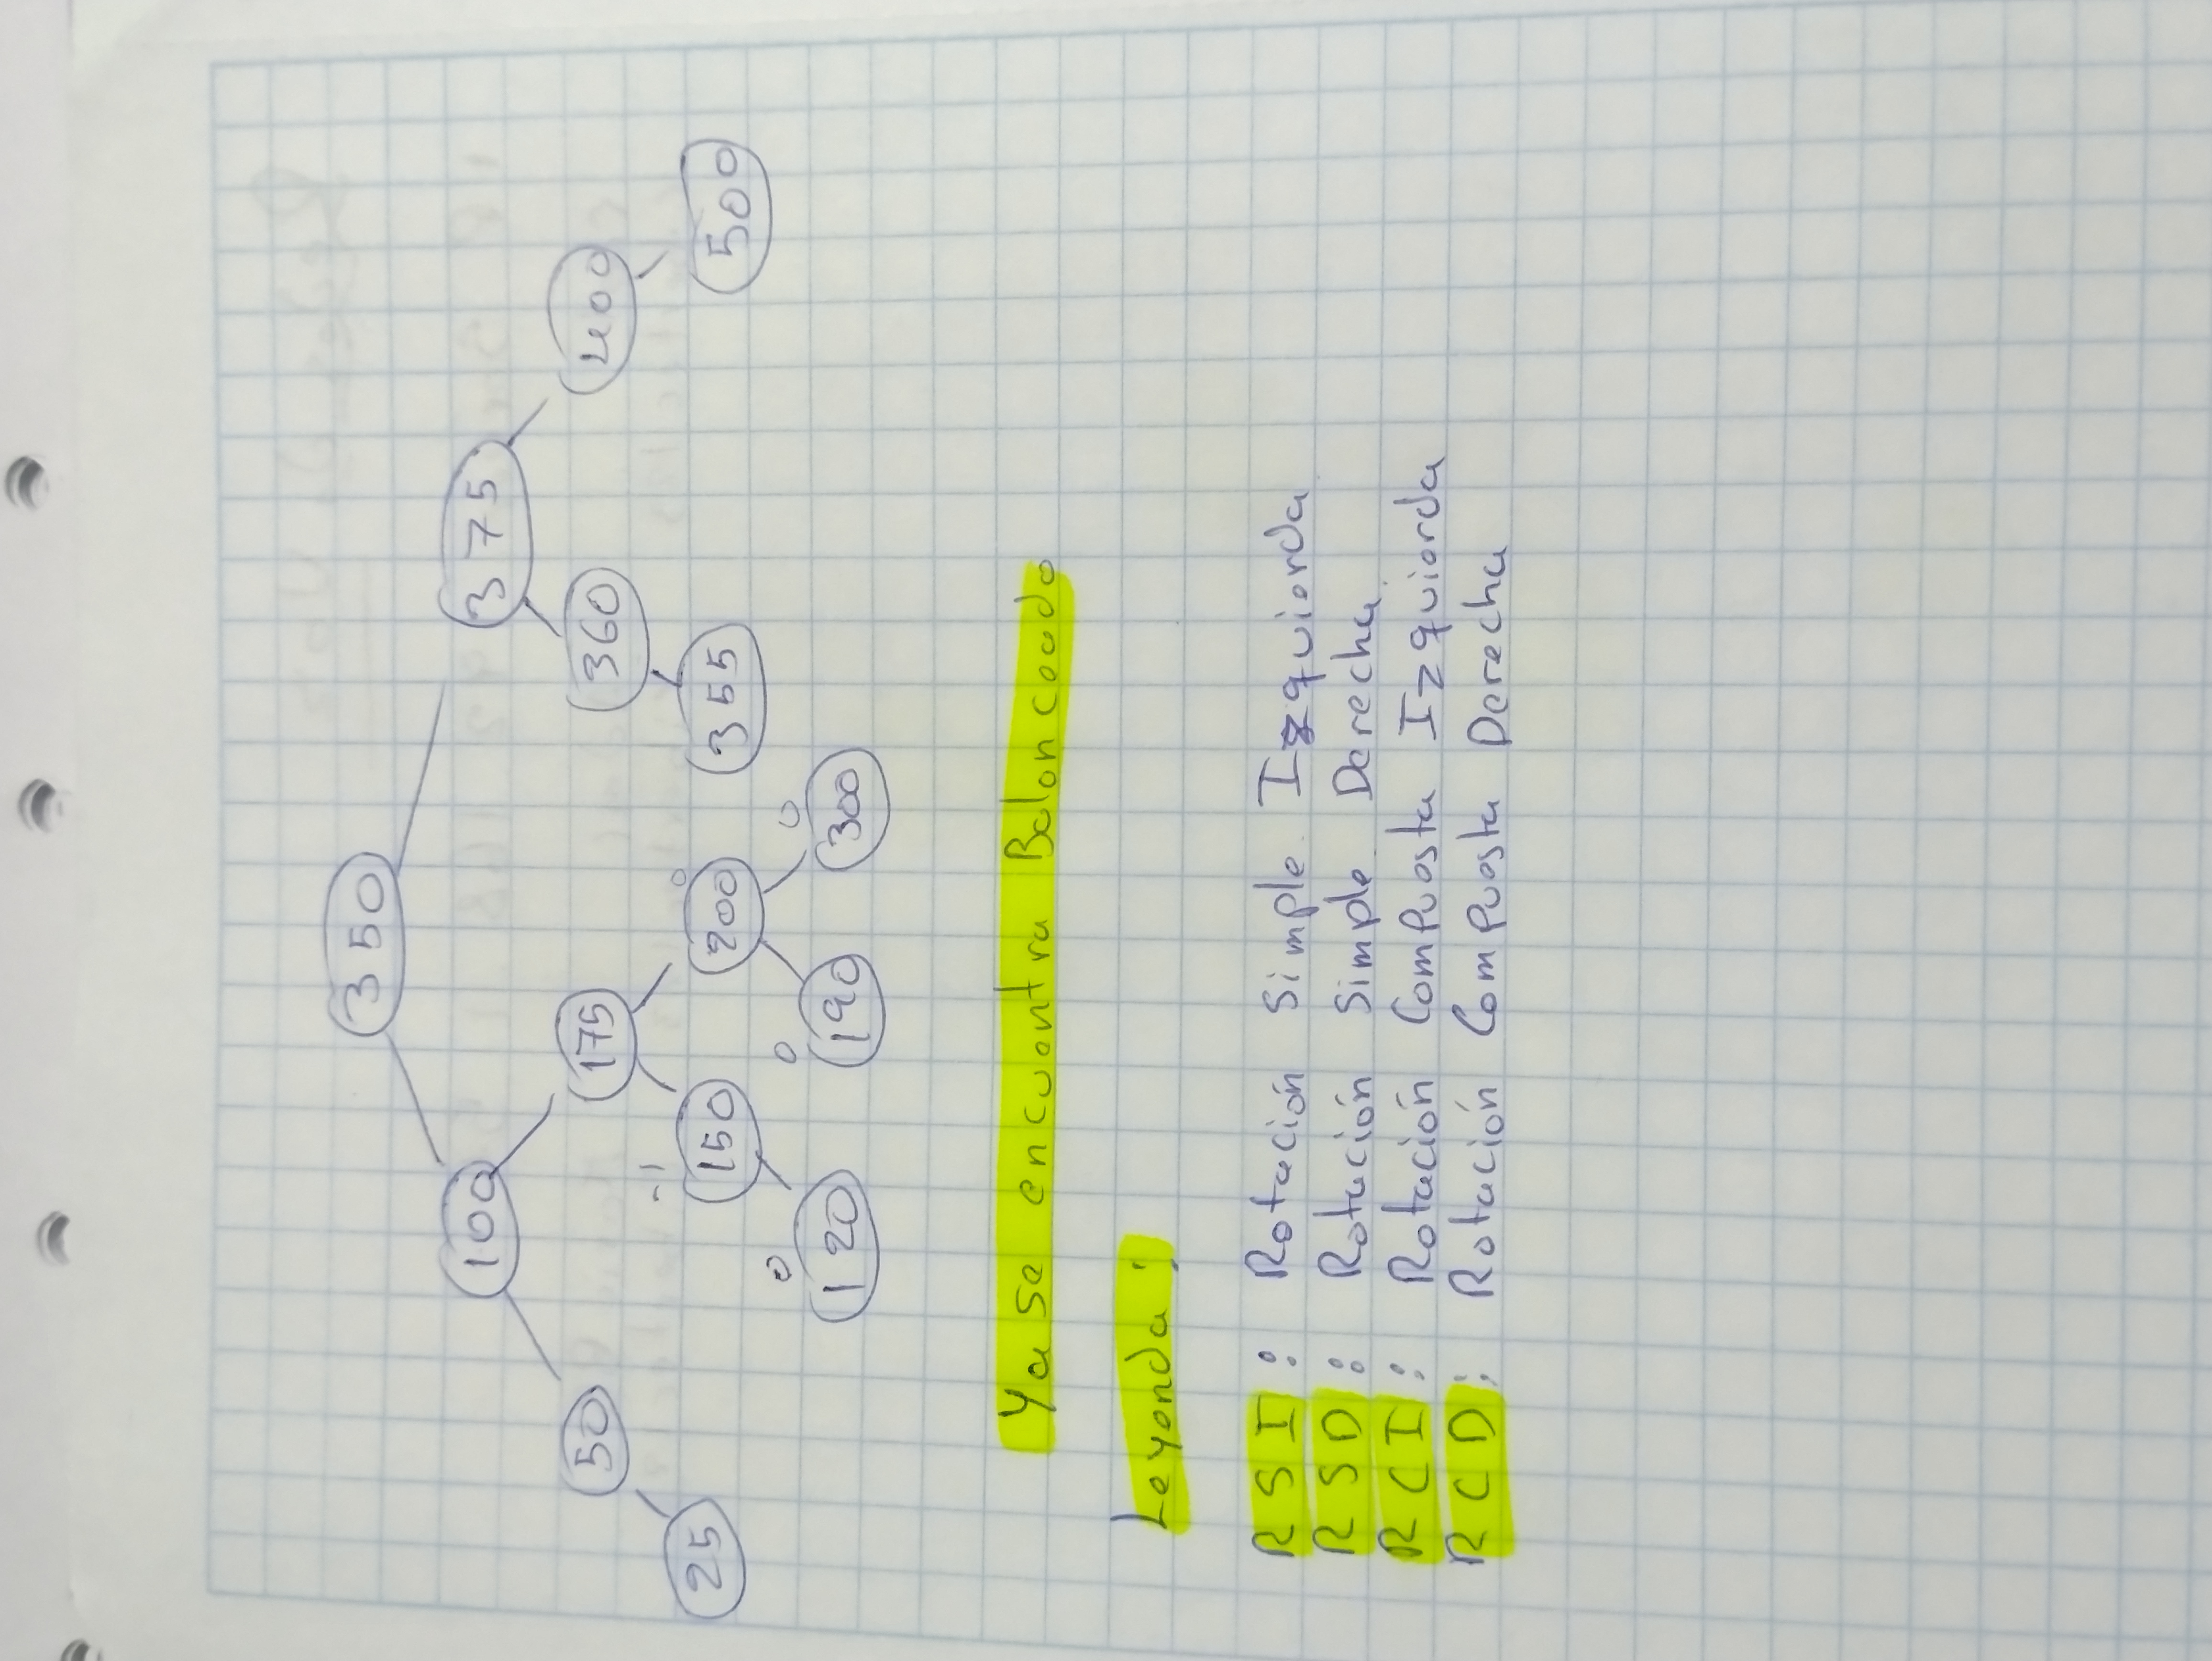 350
100 375
50 175 360 400
-1 0
25 150 200 355 500
0 0 0
120 190 300
Ya se encuentra Balanceado
Leyenda:
RSI: Rotación Simple Izquierda
RSD: Rotación Simple Derecha
RCI: Rotación Compuesta Izquierda
RCD: Rotación Compuesta Derecha